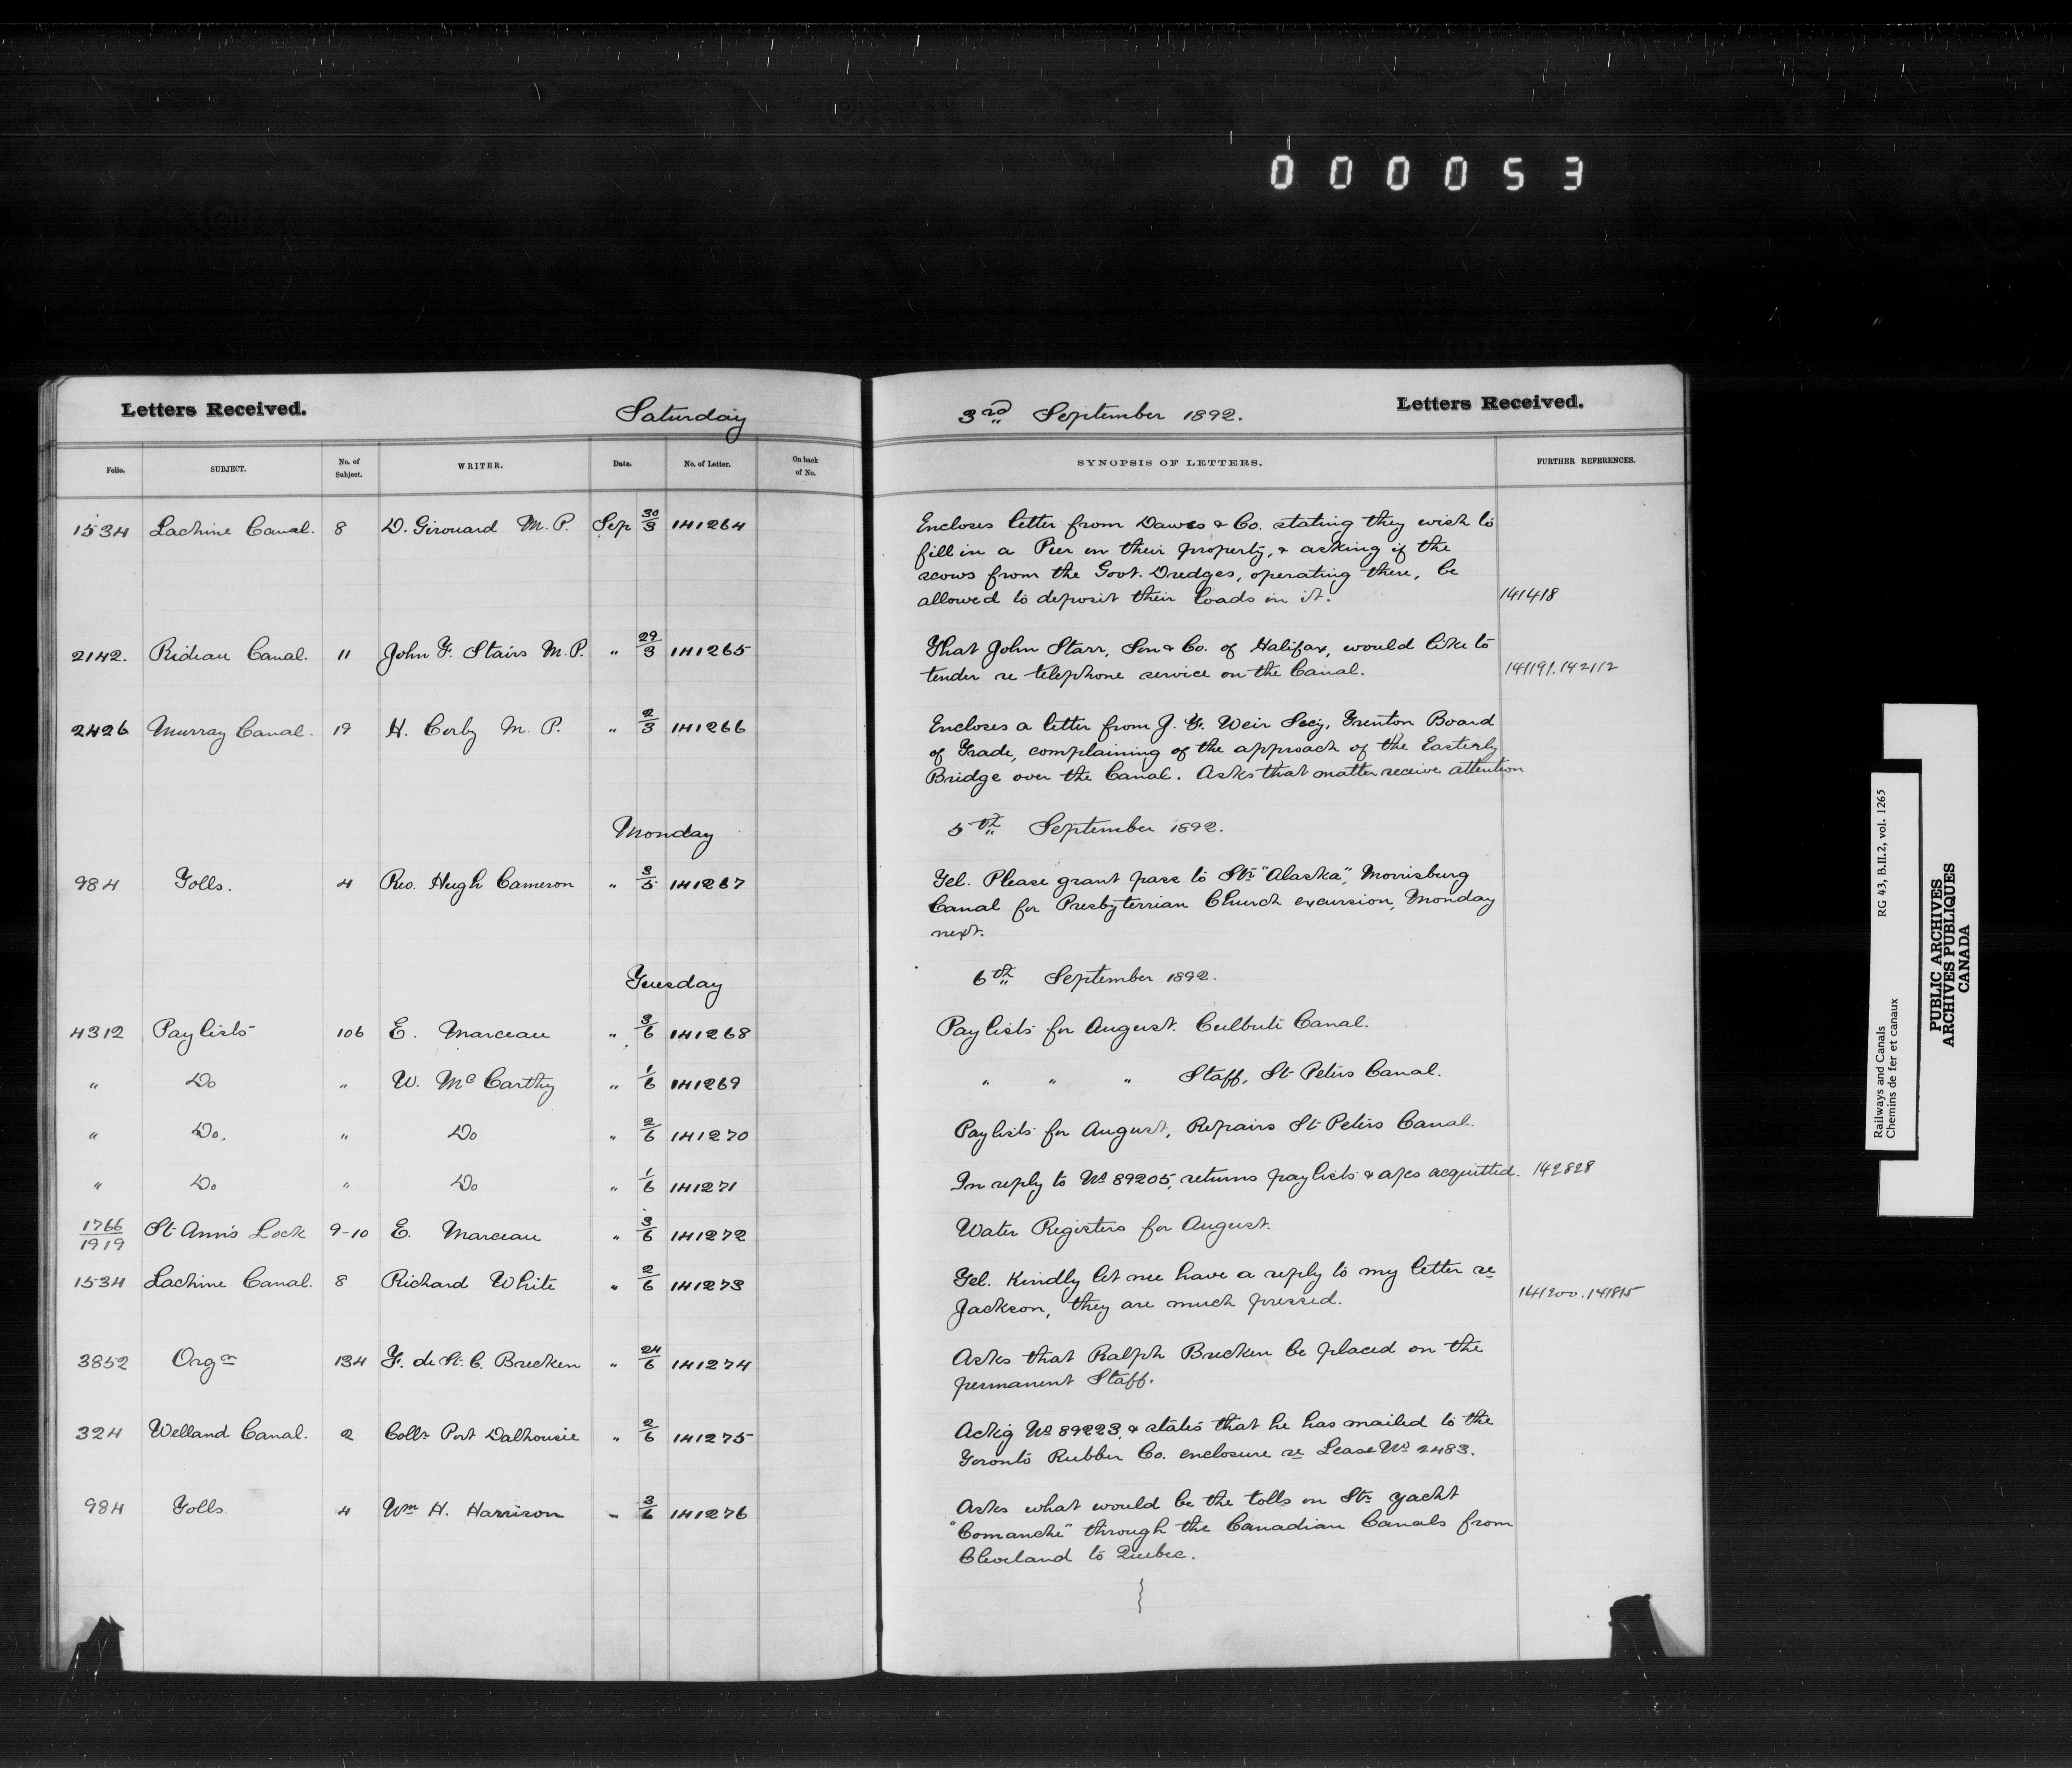 0 0 0 0 5 3
Letters Received.
Saturday
3rd September 1892.
Letters Received.
Folio. SUBJECT. No. of Subject. WRITER. Date. No. of Letter. On back of No. SYNOPSIS OF LETTERS. FURTHER REFERENCES.
1534 Lachine Canal. 8 D. Girouard M. P. Sep 30/3 141264
Encloses letter from Dawes & Co. stating they wish to
fill in a Pier on their property, & asking if the
scows from the Govt. Dredges, operating there, be
allowed to deposit their loads in it. 141418
2142. Rideau Canal. 11 John F. Stairs M. P. " 29/3 141265
That John Starr, Son & Co. of Halifax, would like to
tender re telephone service on the Canal. 141191. 142112
2426 Murray Canal. 19 H. Corby M. P. " 2/3 141266
Encloses a letter from J. F. Weir Secy, Trenton Board
of Trade, complaining of the approach of the Easterly
Bridge over the Canal. Asks that matter receive attention
Monday 5th September 1892.
984 Tolls. 4 Rev. Hugh Cameron " 3/5 141267
Tel. Please grant pass to Str "Alaska", Morrisburg
Canal for Presbyterrian Church excursion, Monday
next.
Tuesday 6th September 1892.
4312 Paylists 106 E. Marceau " 3/6 141268 Paylists for August. Culbute Canal.
" Do " W. McCarthy " 1/6 141269 " " " Staff, St Peters Canal.
" Do. " Do " 2/6 141270 Paylists for August, Repairs St Peters Canal.
" Do " Do " 1/6 141271 In reply to No 89205, returns paylists & a/cs acquitted. 142828
1766/1919 St Ann's Lock 9-10 E. Marceau " 3/6 141272 Water Registers for August.
1534 Lachine Canal. 8 Richard White " 2/6 141273
Tel. Kindly let me have a reply to my letter re
Jackson, they are much pressed. 141200. 141815
3852 Orgn 134 F. de St. C. Brecken " 24/6 141274
Asks that Ralph Brecken be placed on the
permanent Staff.
324 Welland Canal. 2 Collr Port Dalhousie " 2/6 141275
Ackig No 89223, & states that he has mailed to the
Toronto Rubber Co. enclosure re Lease No 2483.
984 Tolls 4 Wm H. Harrison " 3/6 141276
Asks what would be the tolls on Str yacht
"Comanche" through the Canadian Canals from
Cleveland to Quebec.
Railways and Canals RG 43, B.II.2, vol. 1265
Chemins de fer et canaux
PUBLIC ARCHIVES
ARCHIVES PUBLIQUES
CANADA